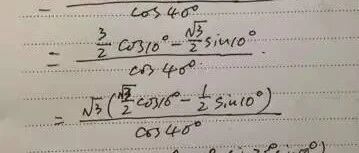 = cos40°
= (3/2 cos10° - √3/2 sin10°) / cos40°
= √3(√3/2 cos10° - 1/2 sin10°) / cos40°